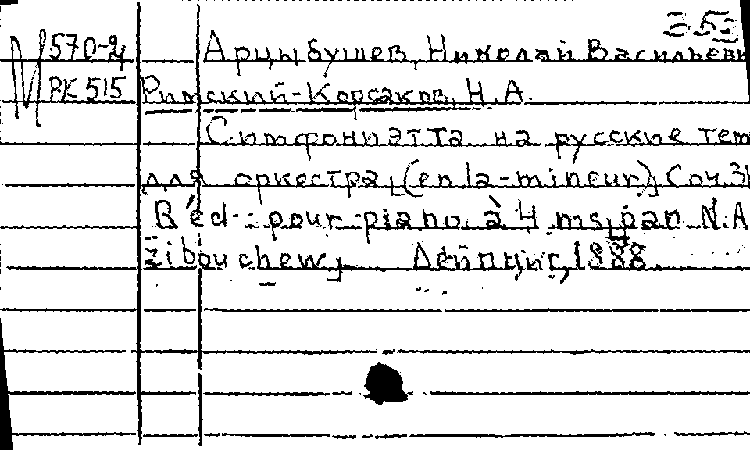 353
М 570-2 Арцыбушев, Николай Васильеви
РК 515 Римский-Корсаков, Н.А.
Симфониэтта на русские тем
для оркестра, (en la-mineur), Соч. 31
Réd. pour piano à 4 ms, par N.A
zibouchew, Лейпциг, 1888.